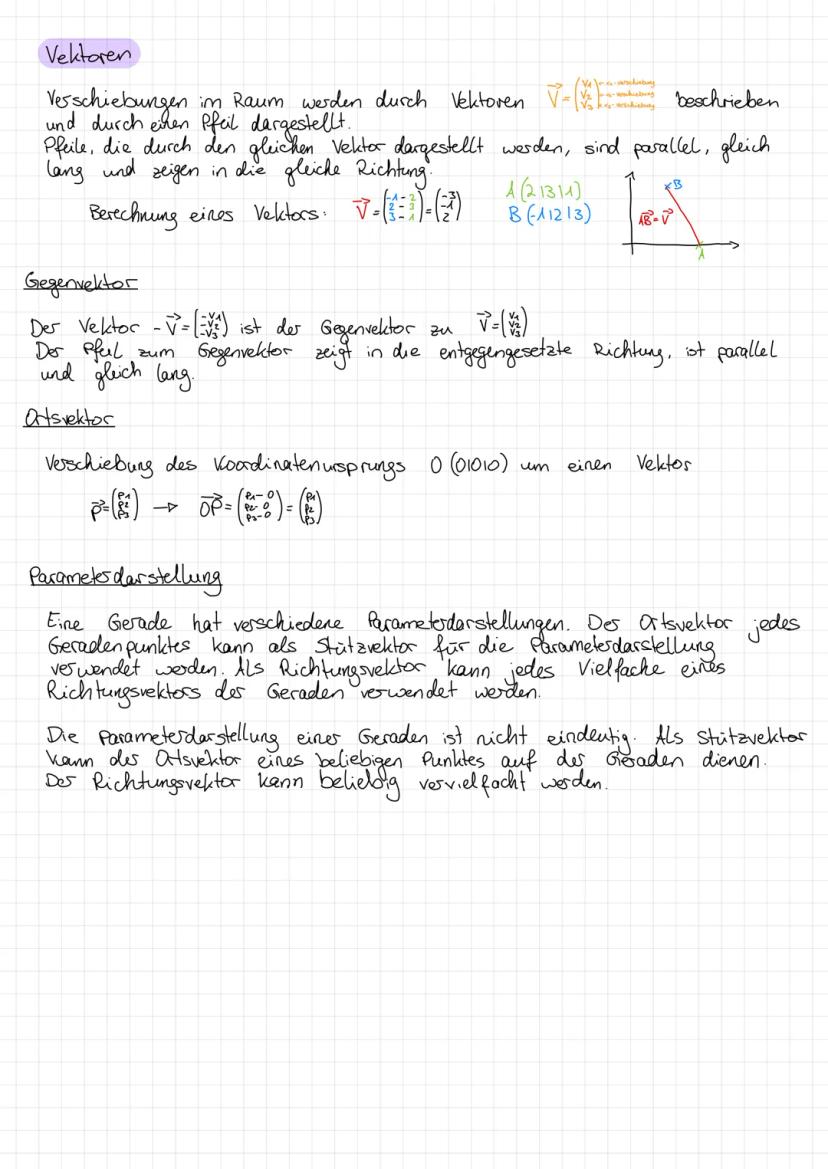 Vektoren
Verschiebungen im Raum werden durch Vektoren V⃗ = (V1 V2 V3) ←x1-verschiebung ←x2-verschiebung ←x3-verschiebung beschrieben
und durch einen Pfeil dargestellt.
Pfeile, die durch den gleichen Vektor dargestellt werden, sind parallel, gleich
lang und zeigen in die gleiche Richtung.
Berechnung eines Vektors: V⃗ = (-1-2 2-3 3-1) = (-3 -1 2)
A (2|3|1)
B (-1|2|3)
B
AB⃗ = V⃗
A
Gegenvektor
Der Vektor -V⃗ = (-V1 -V2 -V3) ist der Gegenvektor zu V⃗ = (V1 V2 V3)
Der Pfeil zum Gegenvektor zeigt in die entgegengesetzte Richtung, ist parallel
und gleich lang.
Ortsvektor
Verschiebung des Koordinatenursprungs O (0|0|0) um einen Vektor
P⃗ = (P1 P2 P3) → OP⃗ = (P1-0 P2-0 P3-0) = (P1 P2 P3)
Parameterdarstellung
Eine Gerade hat verschiedene Parameterdarstellungen. Der Ortsvektor jedes
Geradenpunktes kann als Stützvektor für die Parameterdarstellung
verwendet werden. Als Richtungsvektor kann jedes Vielfache eines
Richtungsvektors der Geraden verwendet werden.
Die Parameterdarstellung einer Geraden ist nicht eindeutig. Als Stützvektor
kann der Ortsvektor eines beliebigen Punktes auf der Geraden dienen.
Der Richtungsvektor kann beliebig vervielfacht werden.